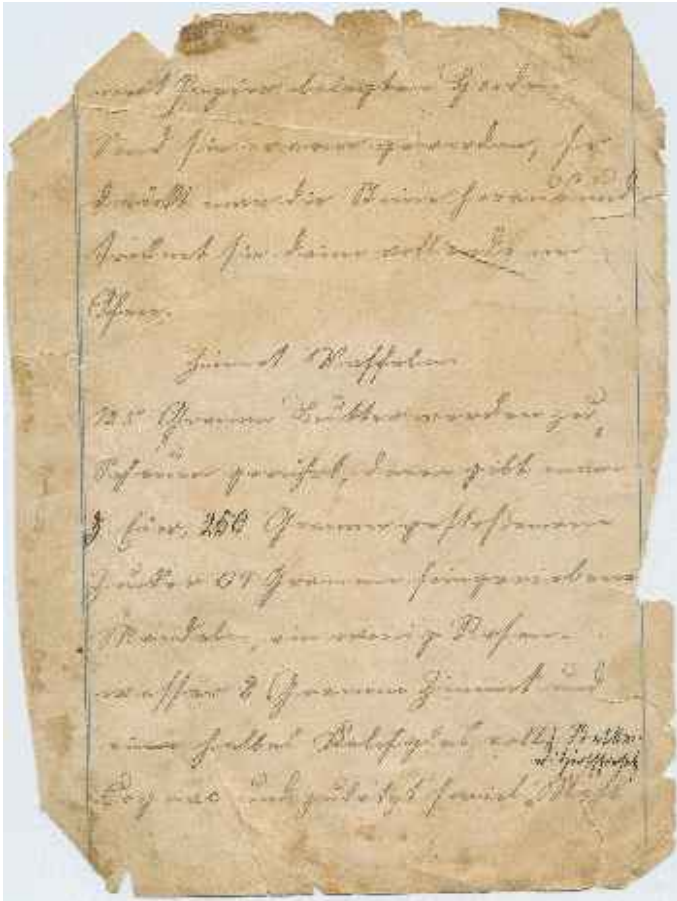 mit Papier belegten Horden.
Sind sie warm geworden, so
drückt man die Steine heraus und
trocknet sie dann vollends im
Ofen.
Zimmt Waffeln
125 Gramm Butter werden zu
Schaum gerührt, dann gibt man
3 Eier, 250 Gramm gestoßenen
Zucker Gramm feingeriebene
Mandeln, ein wenig Rosen-
wasser 8 Gramm Zimmt und
ein halbes voll
u. Hirschhornsalz
und zuletzt soviel Mehl